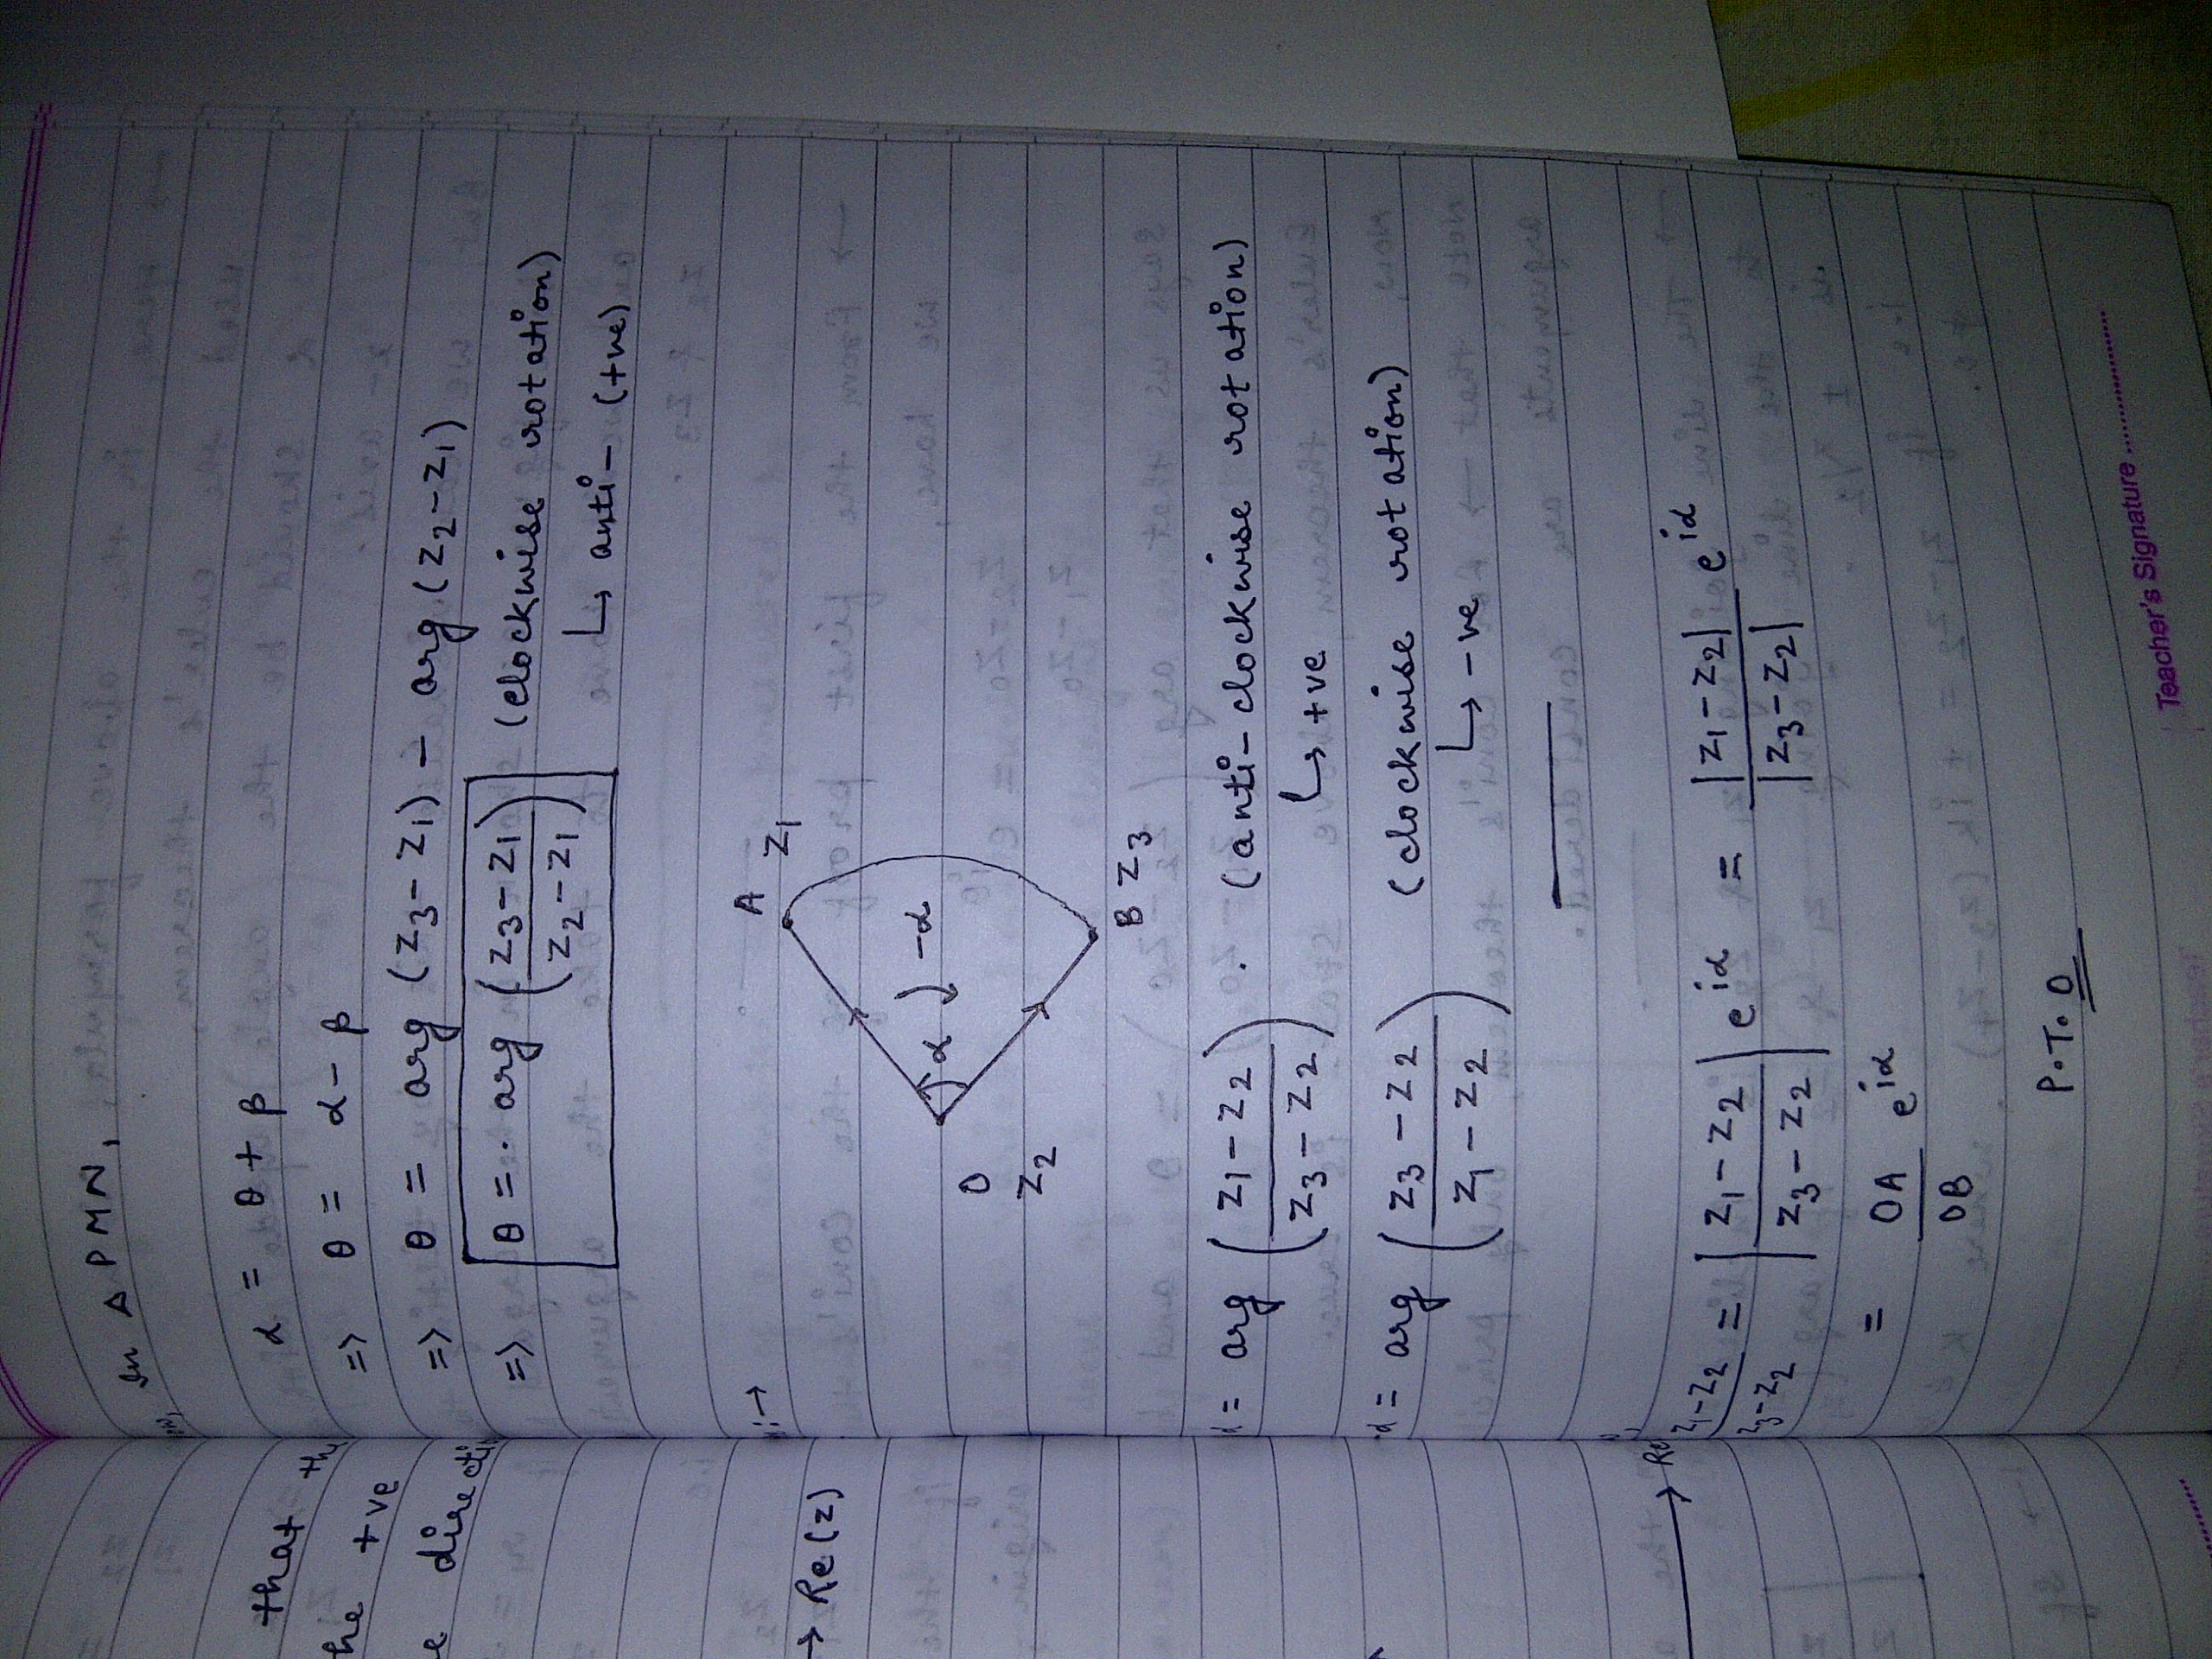 that the
he +ve
e directi
→ Re(z)
Re
In Δ PMN,
α = θ + β
=> θ = α - β
=> θ = arg (z3 - z1) - arg (z2 - z1)
=> θ = . arg ((z3 - z1)/(z2 - z1)) (clockwise rotation)
↳ anti- (+ve)
:→
A z1
α -α
O
z2
B z3
α = arg ((z1 - z2)/(z3 - z2)) . (anti-clockwise rotation)
↳ +ve
-α = arg ((z3 - z2)/(z1 - z2)) (clockwise rotation)
↳ -ve
(z1 - z2)/(z3 - z2) = |(z1 - z2)/(z3 - z2)| e^iα = |z1 - z2|/|z3 - z2| e^iα
= OA/OB e^iα
P.T.O
Teacher's Signature ....................